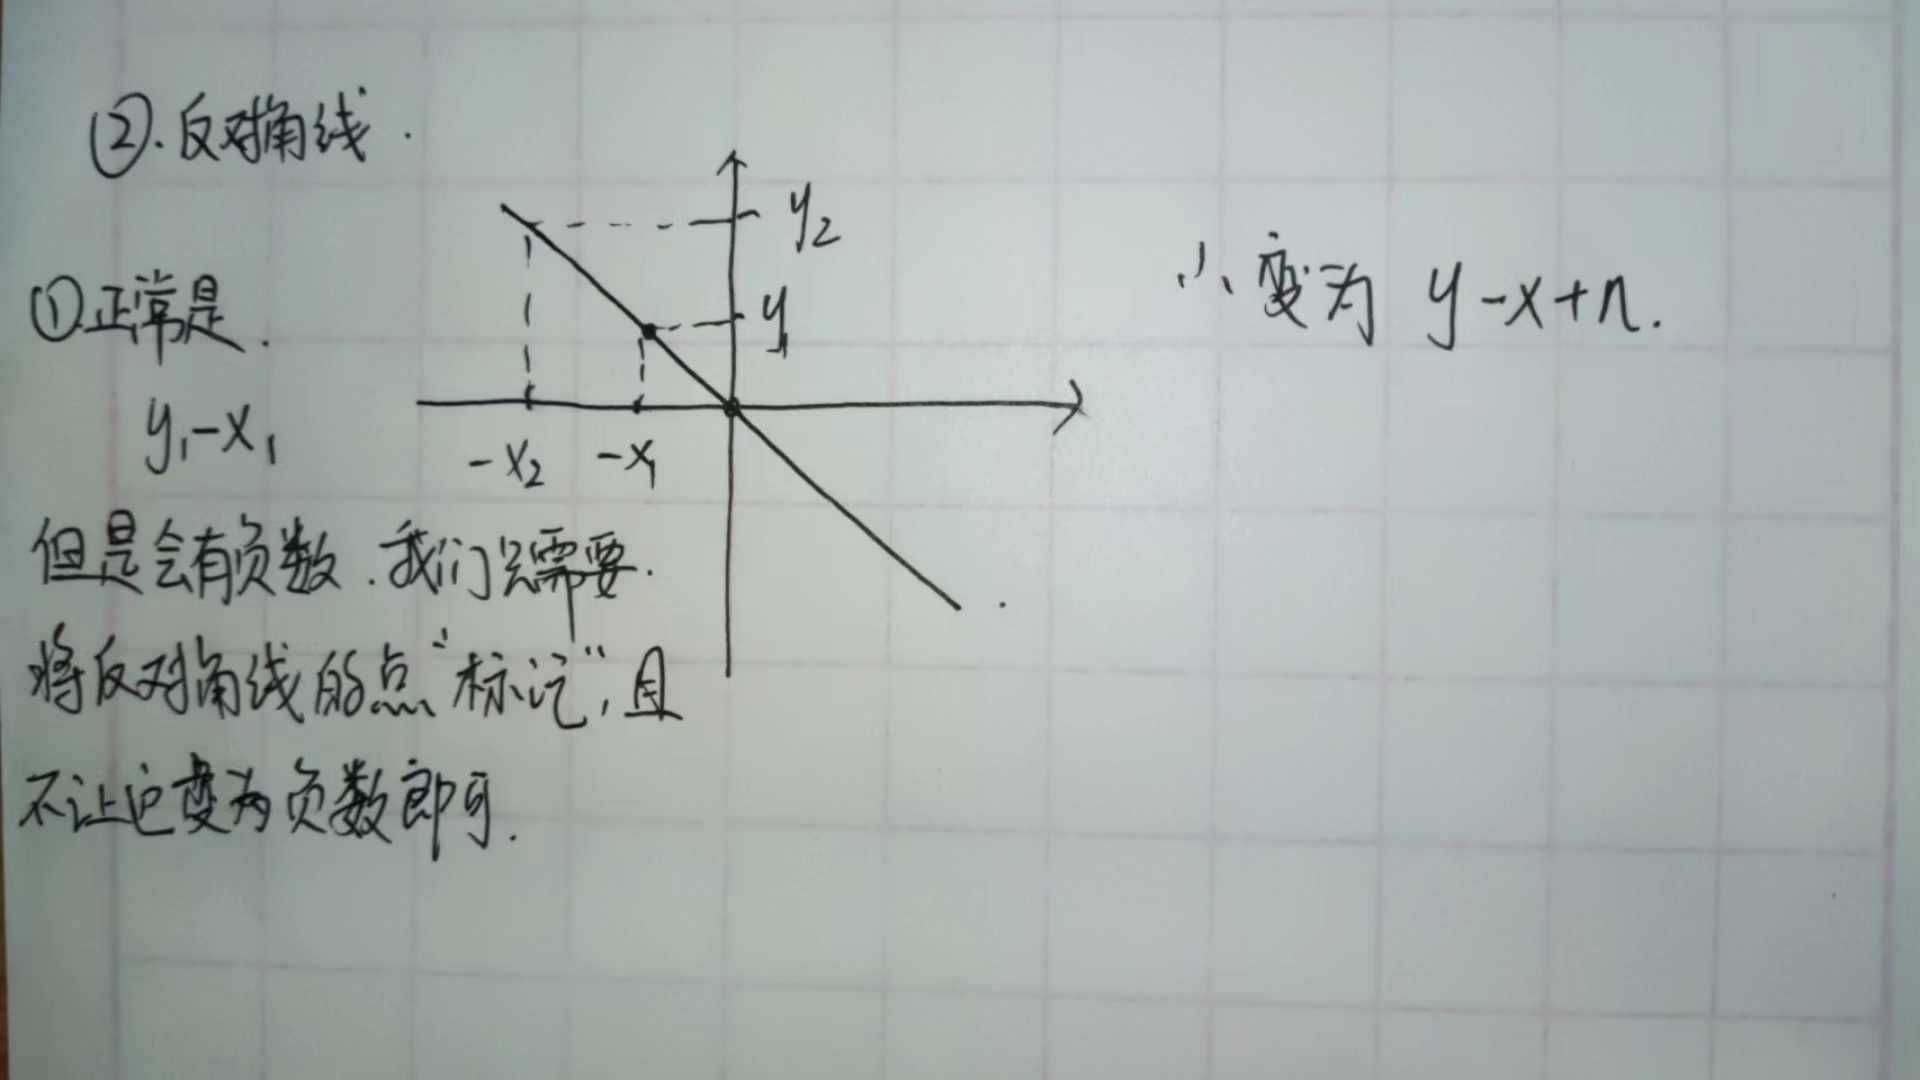 ②.反对角线.
①正常是.
y₁-x₁
但是会有负数.我们只需要.
将反对角线的点“标记”,且
不让它变为负数即可.
y₂
y₁
-x₂ -x₁
∴变为 y-x+n.